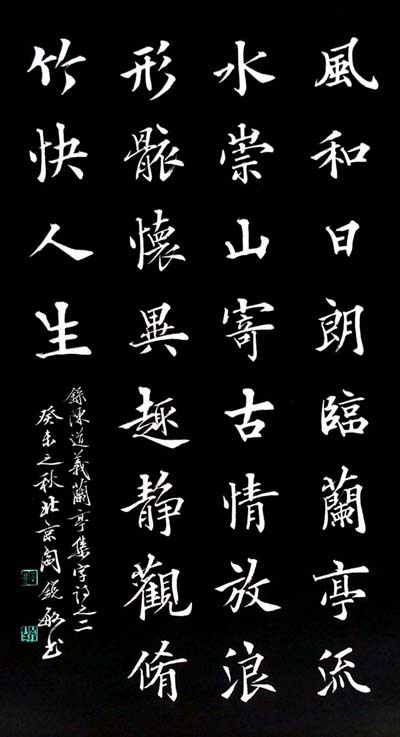 風和日朗臨蘭亭流
水崇山寄古情放浪
形骸懷異趣靜觀脩
竹快人生
錄陳道義蘭亭集字詩之二
癸未之秋北京閻銳敏书